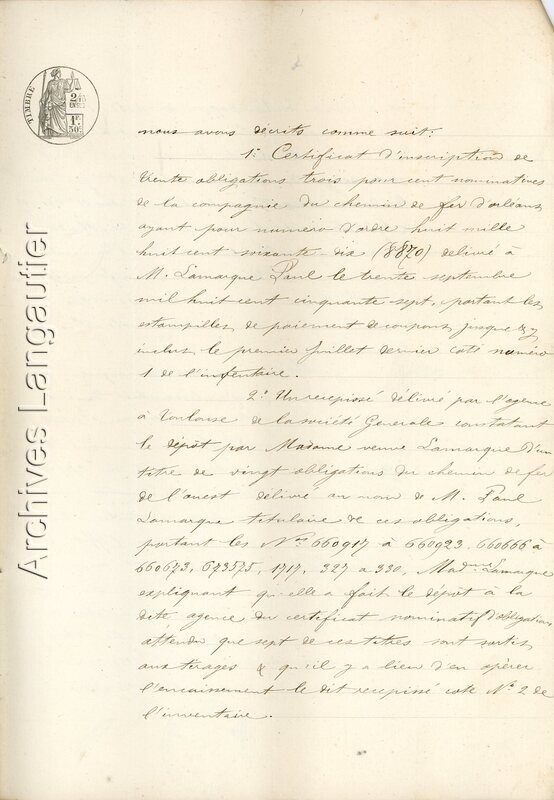 TIMBRE
2/10
EN SUS
1F.
50C.
Archives Langautier
nous avons décrits comme suit:
1º Certificat d'inscription de
trente obligations trois pour cent nominatives
de la compagnie du chemin de fer d'orléans
ayant pour numéro d'ordre huit mille
huit cent soixante dix (8870) delivré à
M. Lamarque Paul le trente septembre
mil huit cent cinquante sept, portant les
estampilles de paiement de coupons jusque & y
inclus le premier juillet dernier coté numéro
1 de l'inventaire.
2º Un recepissé délivré par l'agence
à Toulouse de la société Generale constatant
le dépôt par Madame veuve Lamarque d'un
titre de vingt obligations du chemin de fer
de l'ouest delivré au nom de M. Paul
Lamarque titulaire de ces obligations,
portant les Nos 660917 à 660923. 660666 à
660673, 673575, 1717, 327 à 330, Madme Lamarque
expliquant qu'elle a fait le dépôt à la
dite agence du certificat nominatif d'obligations
attendu que sept de ces titres sont sortis
aux tirages & qu'il y a lieu d'en opérer
l'encaissement le dit recepissé coté Nº 2 de
l'inventaire.